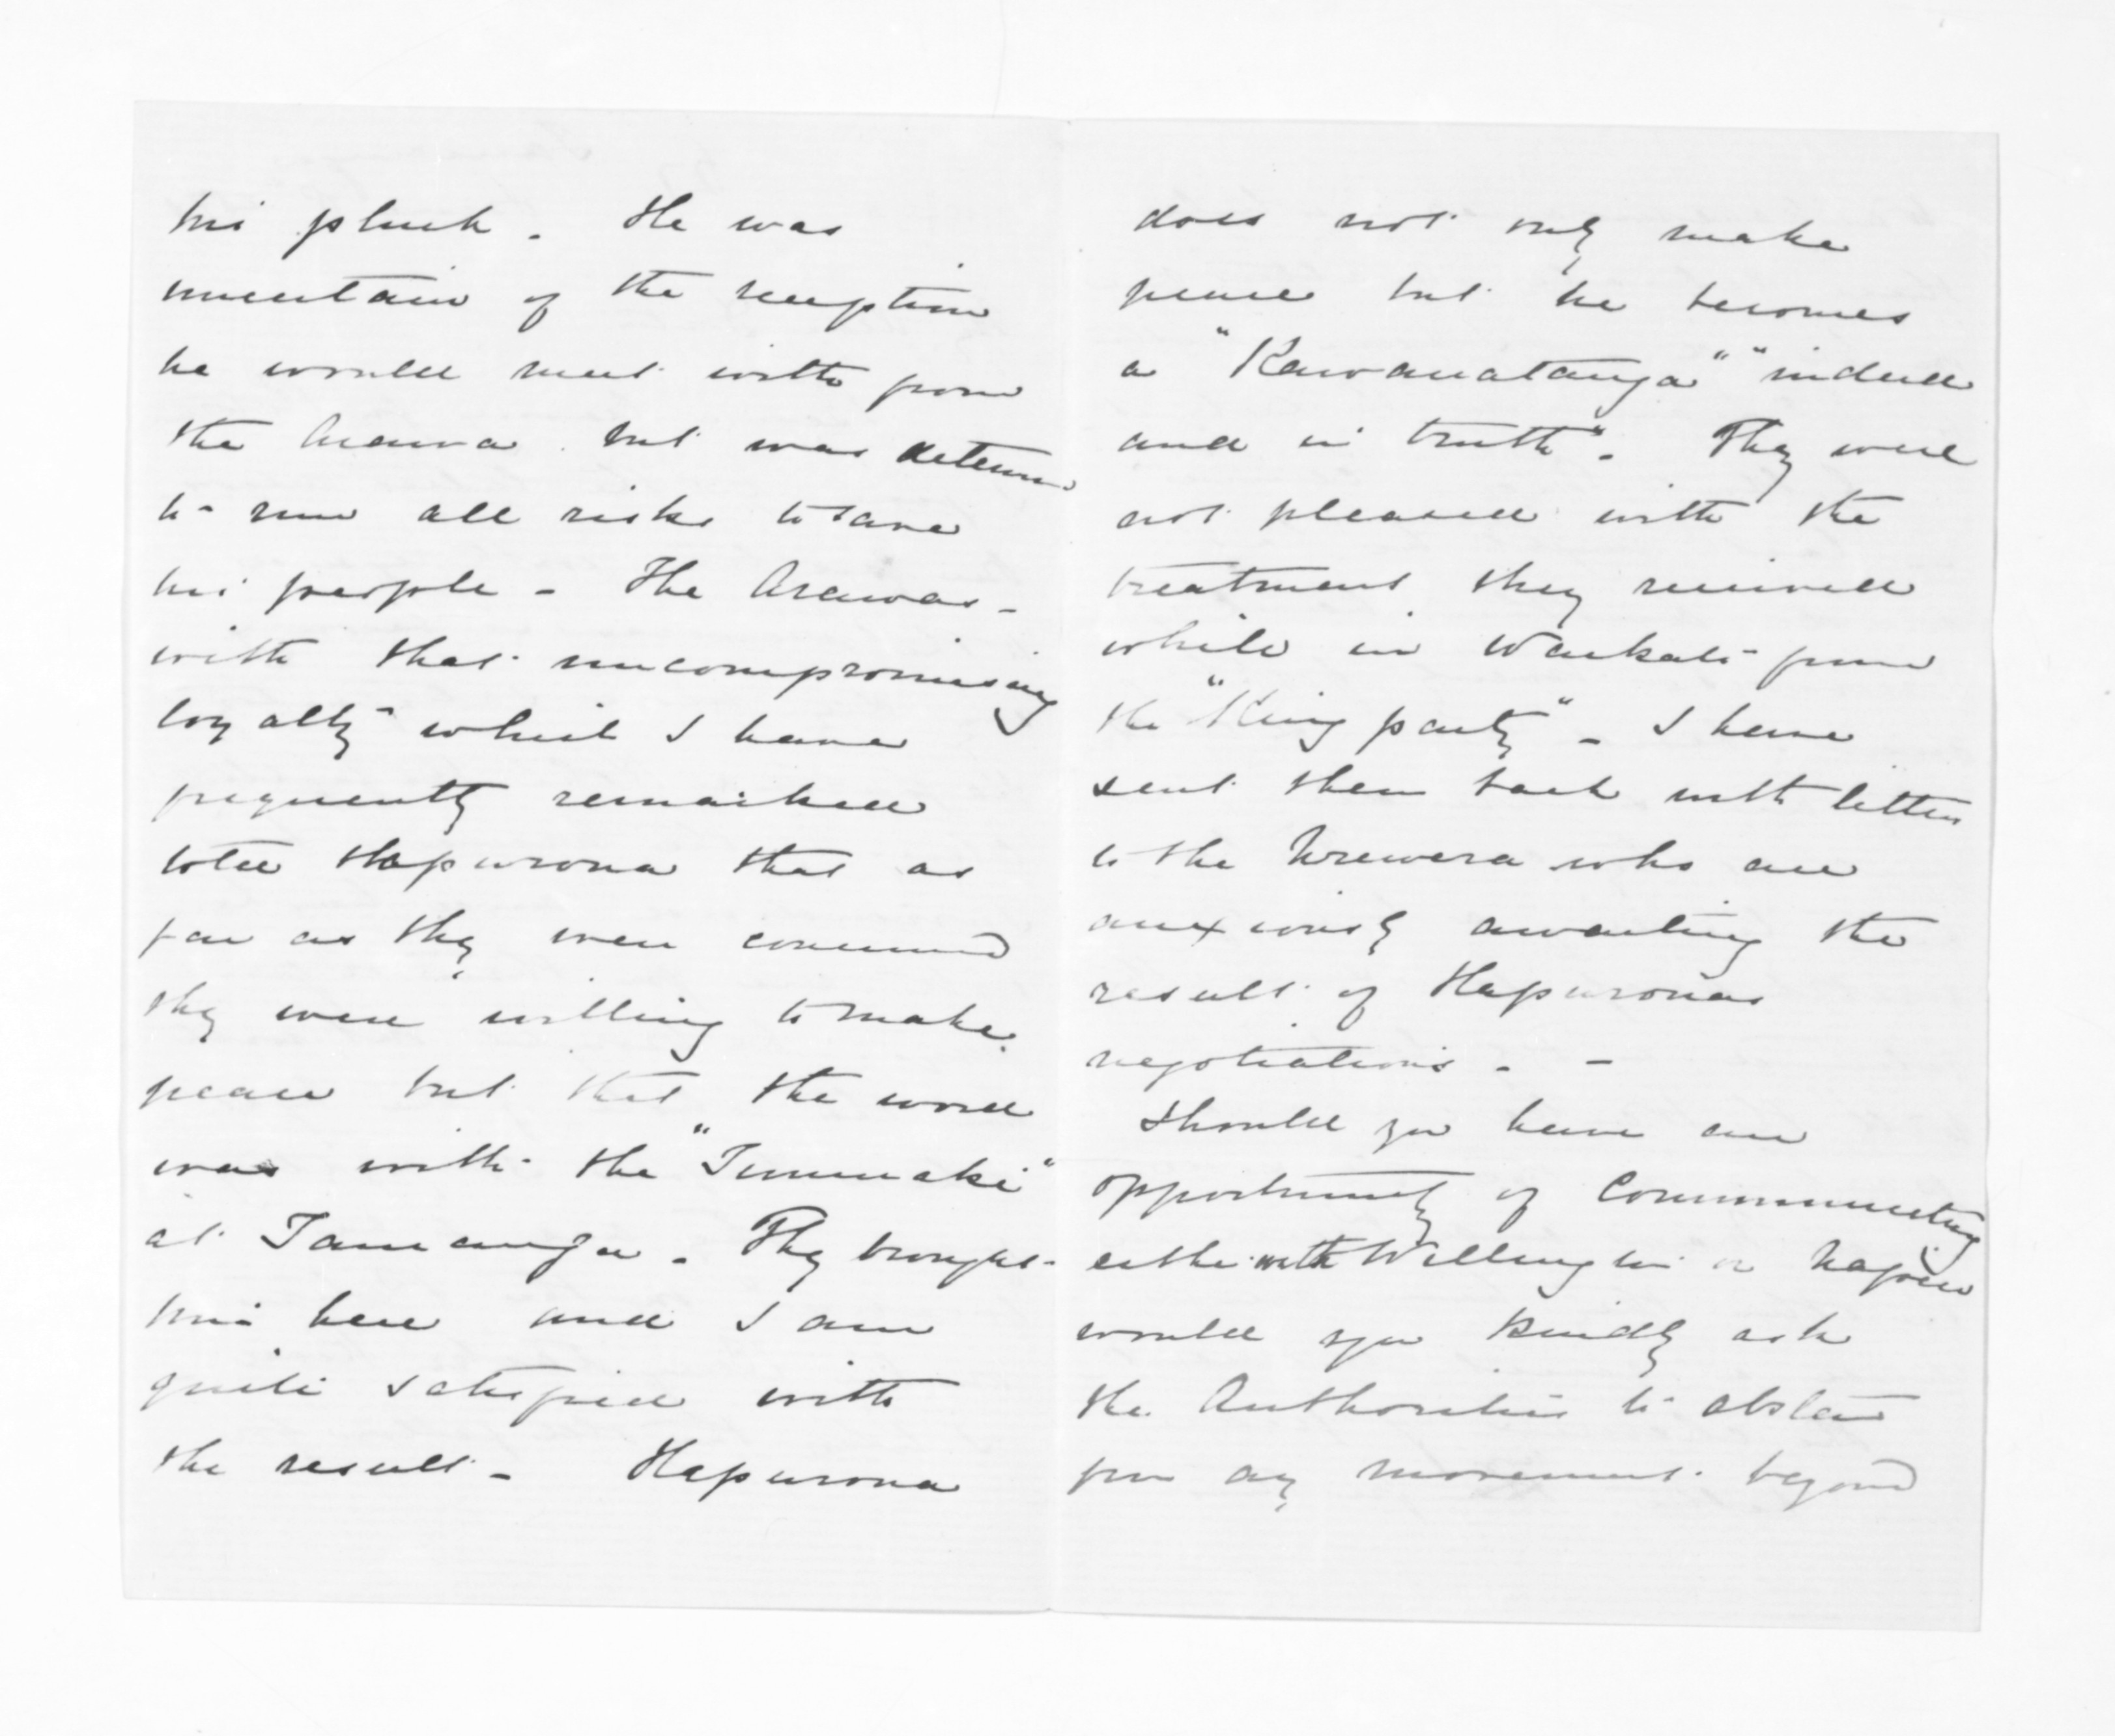 his pluck. He was
uncertain of the reception
he would meet with from
the Arawa but was determd
to run all risks to save
his people - The Arawas -
with that uncompromising
loyalty which I have
frequently remarked
told Hapurona that as
far as they were concerned
they were willing to make
peace but that the word
was with the "Tumuaki"
at Tauranga. They brought
him here and I am
quite satisfied with
the result - Hapurona
does not only make
peace but he becomes
a "Kawanatanga" "indeed
and in truth". They were
not pleased with the
treatment they received
while in Waikato from
the "King party" - I have
sent them back with letters
to the Urewera who are
anxiously awaiting the
result of Hapuronas
negotiations. -
Should you have an
opportunity of Communicating
either with Wellington or Napier
would you kindly ask
the Authorities to abstain
from any movement beyond